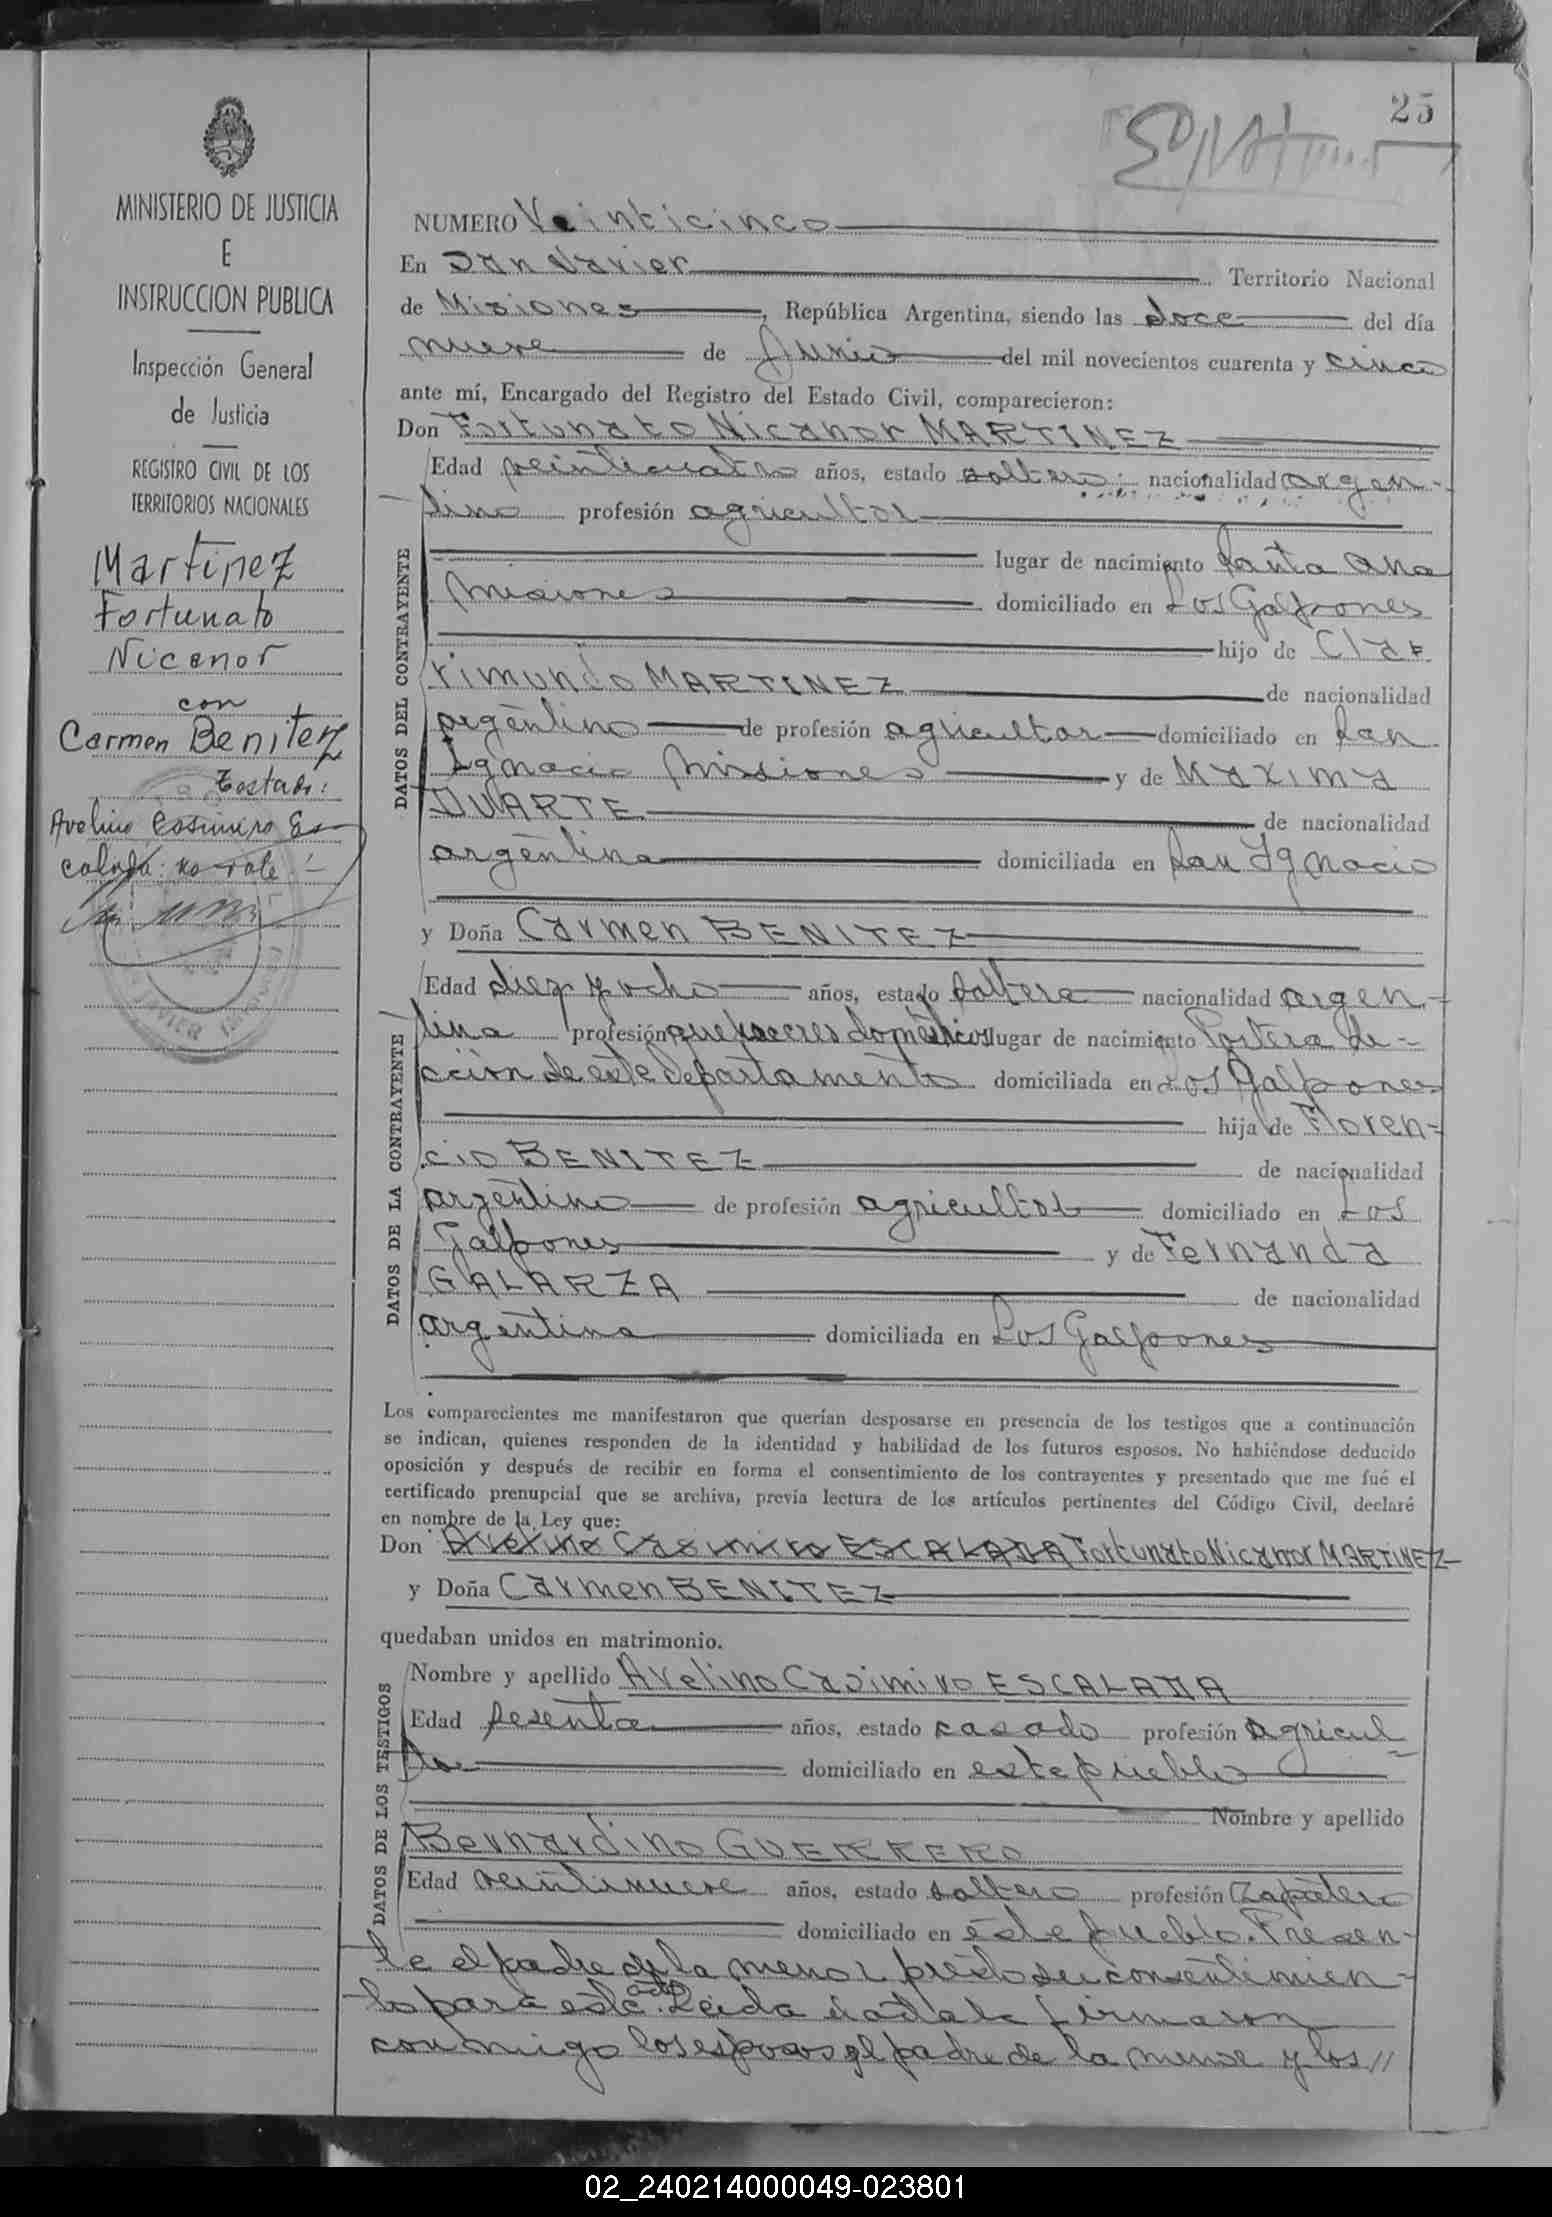 25
MINISTERIO DE JUSTICIA
E
INSTRUCCION PUBLICA
Inspección General
de Justicia
REGISTRO CIVIL DE LOS
TERRITORIOS NACIONALES
Martinez
Fortunato
Nicanor
con
Carmen Benitez
Testado:
Avelino Casimiro Es-
calada: no vale.-
NUMERO Veinticinco
En San Javier Territorio Nacional
de Misiones, República Argentina, siendo las doce del día
nueve de Junio del mil novecientos cuarenta y cinco
ante mí, Encargado del Registro del Estado Civil, comparecieron:
Don Fortunato Nicanor MARTINEZ
DATOS DEL CONTRAYENTE
Edad veinticuatro años, estado soltero nacionalidad argen-
tino profesión agricultor
lugar de nacimiento Santa Ana
Misiones domiciliado en Los Galpones
hijo de Cla
rimundo MARTINEZ de nacionalidad
argentino de profesión agricultor domiciliado en San
Ignacio Misiones y de Maxima
DUARTE de nacionalidad
argentina domiciliada en San Ignacio
y Doña Carmen BENITEZ
DATOS DE LA CONTRAYENTE
Edad diez y ocho años, estado soltera nacionalidad argen-
tina profesión quehaceres domésticos lugar de nacimiento Portera de-
cción de este departamento domiciliada en Los Galpones
hija de Floren-
cio BENITEZ de nacionalidad
argentino de profesión agricultor domiciliado en Los
Galpones y de Fernanda
GALARZA de nacionalidad
argentina domiciliada en Los Galpones
Los comparecientes me manifestaron que querían desposarse en presencia de los testigos que a continuación
se indican, quienes responden de la identidad y habilidad de los futuros esposos. No habiéndose deducido
oposición y después de recibir en forma el consentimiento de los contrayentes y presentado que me fué el
certificado prenupcial que se archiva, previa lectura de los artículos pertinentes del Código Civil, declaré
en nombre de la Ley que:
Don Avelino Casimiro ESCALADA Fortunato Nicanor MARTINEZ
y Doña Carmen BENITEZ
quedaban unidos en matrimonio.
DATOS DE LOS TESTIGOS
Nombre y apellido Avelino Casimiro ESCALADA
Edad sesenta años, estado casado profesión agricul
tor domiciliado en este pueblo
Nombre y apellido
Bernardino GUERRERO
Edad veintinueve años, estado soltero profesión Zapatero
domiciliado en este pueblo. Presen-
te el padre de la menor prestó su consentimien-
to para este acto. Leída el acta la firmaron
conmigo los esposos, el padre de la menor y los //
02_240214000049-023801